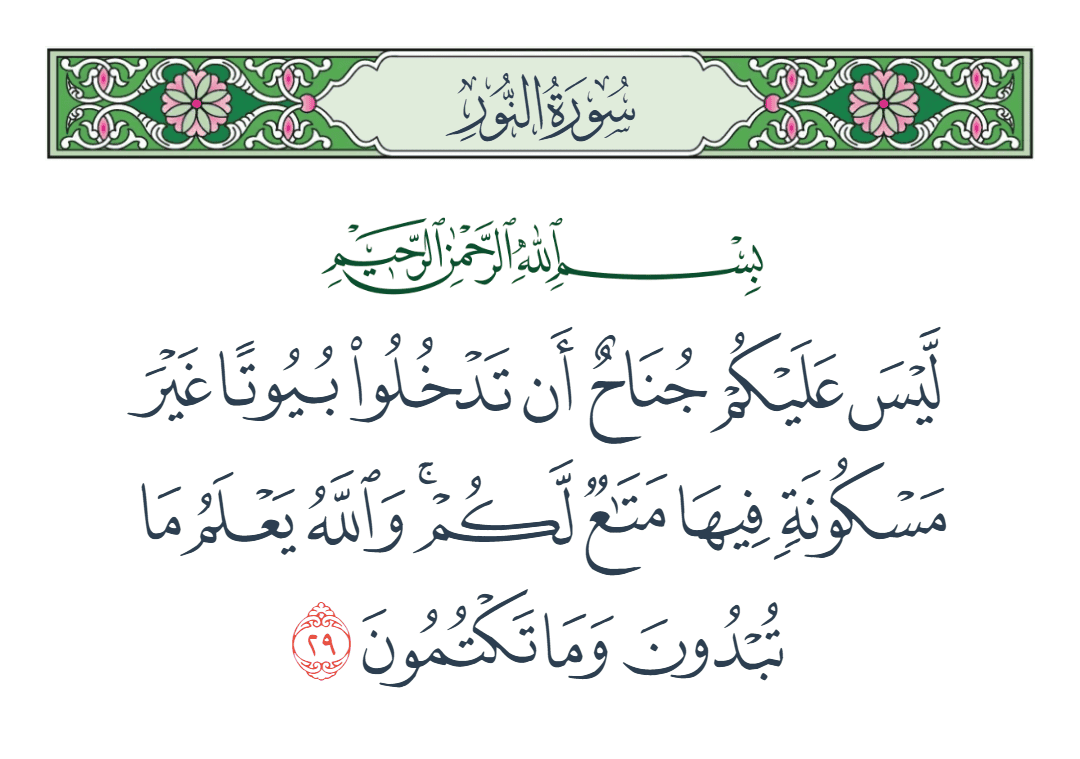 سُورَةُ النُّورِ
بِسْمِ ٱللَّهِ ٱلرَّحْمَٰنِ ٱلرَّحِيمِ
لَّيْسَ عَلَيْكُمْ جُنَاحٌ أَن تَدْخُلُوا۟ بُيُوتًا غَيْرَ
مَسْكُونَةٍ فِيهَا مَتَٰعٌ لَّكُمْ ۚ وَٱللَّهُ يَعْلَمُ مَا
تُبْدُونَ وَمَا تَكْتُمُونَ ٢٩